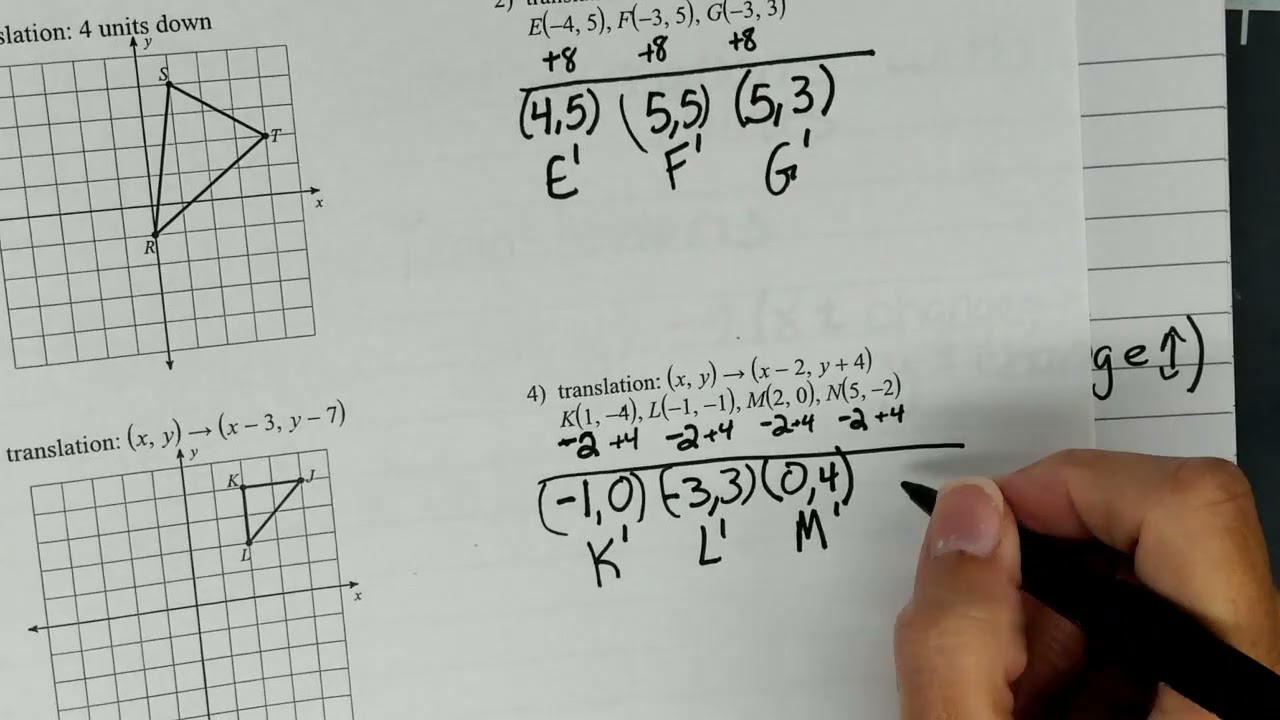 slation: 4 units down
y
S
T
x
R
E(−4, 5), F(−3, 5), G(−3, 3)
+8 +8 +8
(4,5) (5,5) (5,3)
E' F' G'
translation: (x, y) → (x − 3, y − 7)
y
K J
L
x
4) translation: (x, y) → (x − 2, y + 4)
K(1, −4), L(−1, −1), M(2, 0), N(5, −2)
-2 +4 -2 +4 -2 +4 -2 +4
(-1,0) (-3,3) (0,4)
K' L' M'
ge ↕)